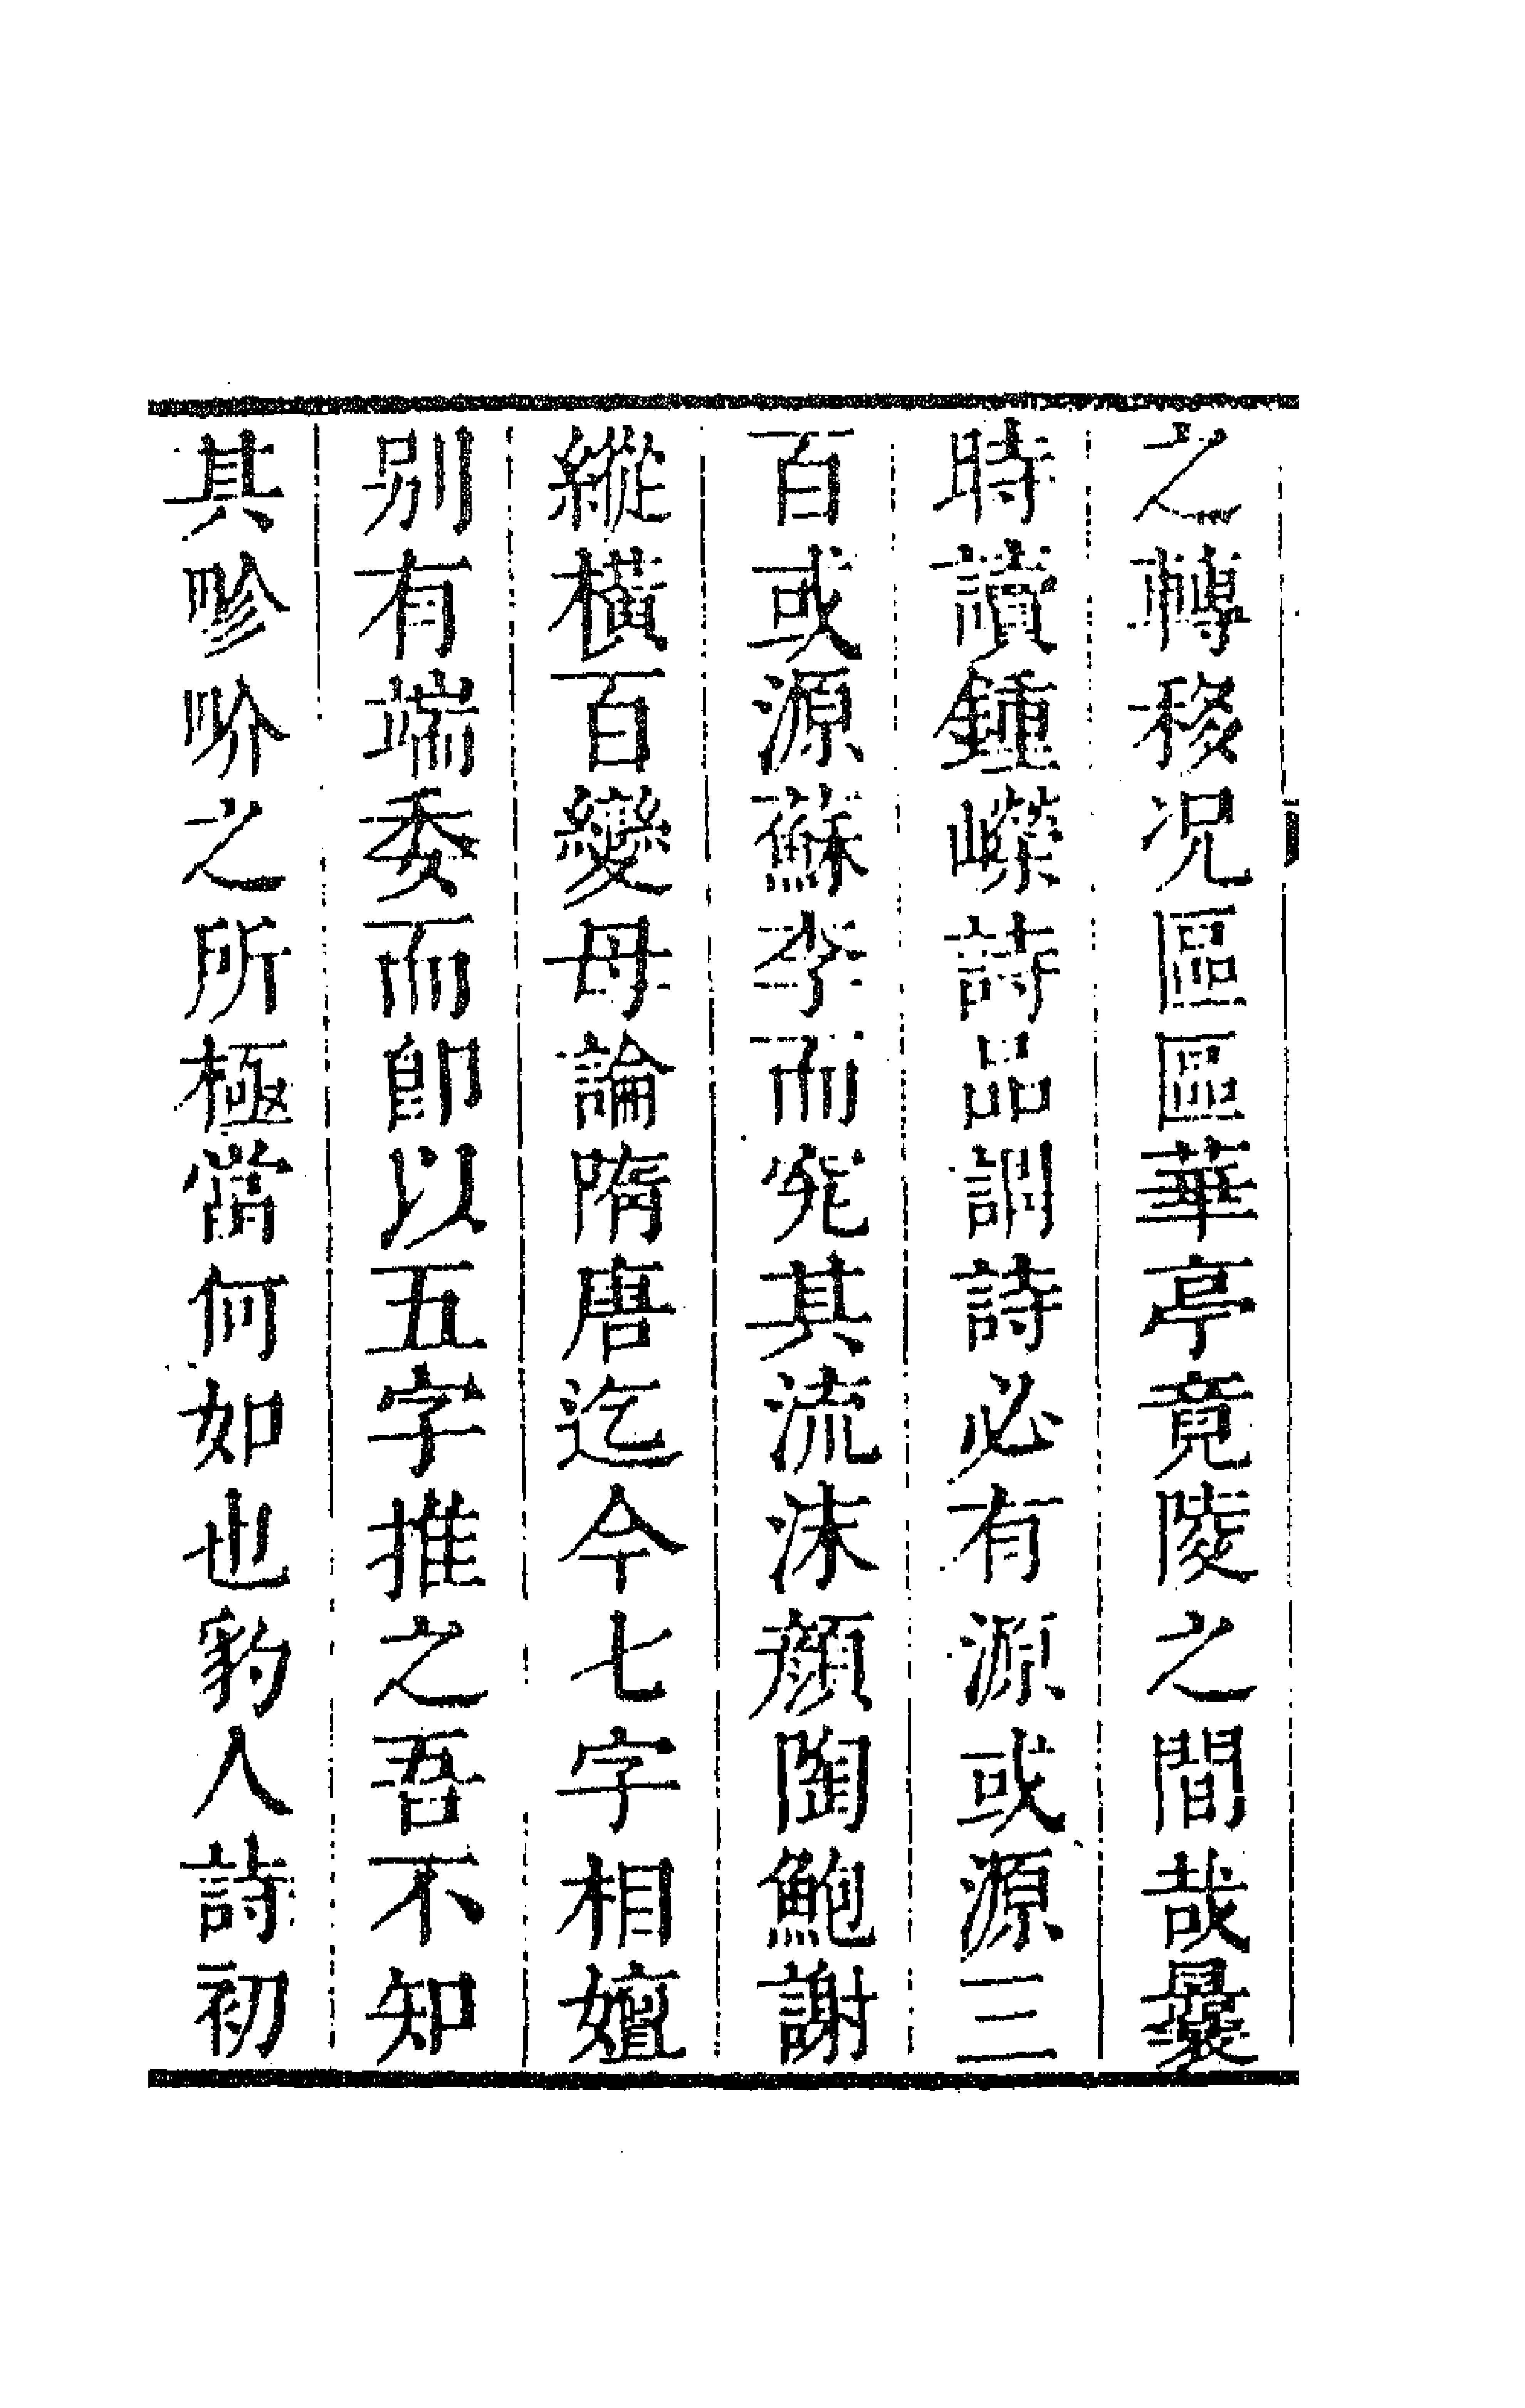 之轉移况區區華亭竟陵之間哉曩
時讀鍾嶸詩品謂詩必有源或源三
百或源蘇李而究其流沫顔陶鮑謝
縱橫百變毋論隋唐迄今七字相嬗
别有端委而卽以五字推之吾不知
其畛畍之所極當何如也豹人詩初